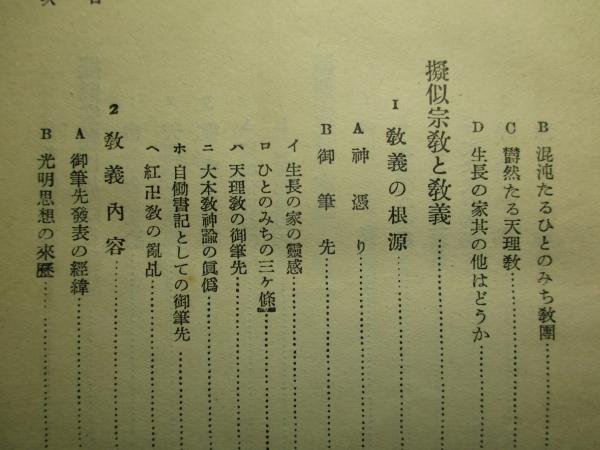 B 混沌たるひとのみち教團
C 鬱然たる天理教
D 生長の家其の他はどうか
擬似宗教と教義
1 教義の根源
A 神憑り
B 御筆先
イ 生長の家の靈感
ロ ひとのみちの三ケ條
ハ 天理教の御筆先
ニ 大本教神諭の眞僞
ホ 自働書記としての御筆先
ヘ 紅卍教の亂乩
2 教義內容
A 御筆先發表の經緯
B 光明思想の來歷